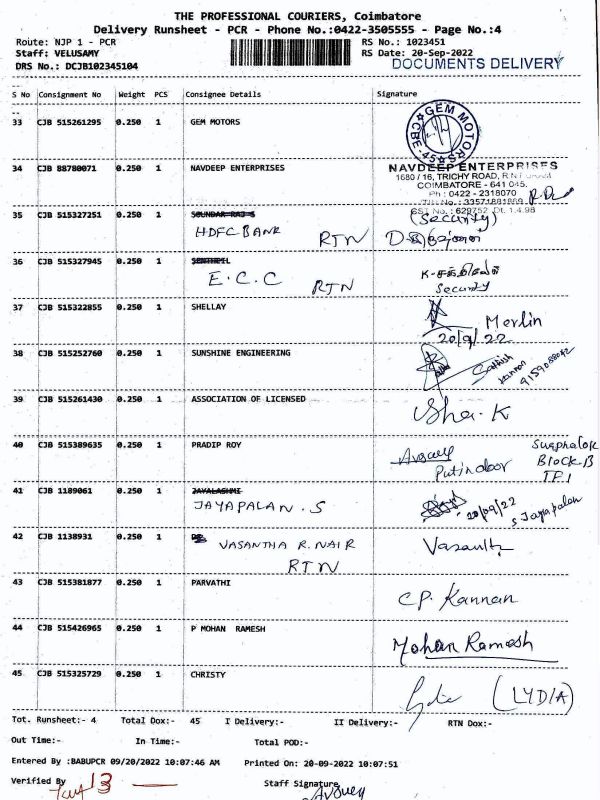 THE PROFESSIONAL COURIERS, Coimbatore
Delivery Runsheet - PCR - Phone No.:0422-3505555 - Page No.:4
Route: NJP 1 - PCR RS No.: 1023451
Staff: VELUSAMY RS Date: 20-Sep-2022
DRS No.: DCJB102345104 DOCUMENTS DELIVERY
S No Consignment No Weight PCS Consignee Details Signature
33 CJB 515261295 0.250 1 GEM MOTORS GEM MOTO CBE-45
34 CJB 88780071 0.250 1 NAVDEEP ENTERPRISES NAVDEEP ENTERPRISES
1680 / 16, TRICHY ROAD,
COIMBATORE - 641 045.
Ph : 0422 - 2318070
GST No. : 629752 Dt. 1.4.98
35 CJB 515327251 0.250 1 SOUNDAR RAJ S (Security)
HDFC BANK RTN
36 CJB 515327945 0.250 1 SENTHIL
E.C.C RTN K-சக்திவேல்
Security
37 CJB 515322855 0.250 1 SHELLAY Merlin
20/9/22
38 CJB 515252760 0.250 1 SUNSHINE ENGINEERING Sathish
kannan
39 CJB 515261430 0.250 1 ASSOCIATION OF LICENSED Sha.K
40 CJB 515389635 0.250 1 PRADIP ROY
Put indoor Block-B
41 CJB 1189061 0.250 1 JAYALASHMI
JAYAPALAN.S 20/09/22
S Jayapalan
42 CJB 1138931 0.250 1 VASANTHA R. NAIR
RTN
43 CJB 515381877 0.250 1 PARVATHI C.P. Kannan
44 CJB 515426965 0.250 1 P MOHAN RAMESH Mohan Ramesh
45 CJB 515325729 0.250 1 CHRISTY (LYDIA)
Tot. Runsheet:- 4 Total Dox:- 45 I Delivery:- II Delivery:- RTN Dox:-
Out Time:- In Time:- Total POD:-
Entered By :BABUPCR 09/20/2022 10:07:46 AM Printed On: 20-09-2022 10:07:51
Verified By Staff Signature